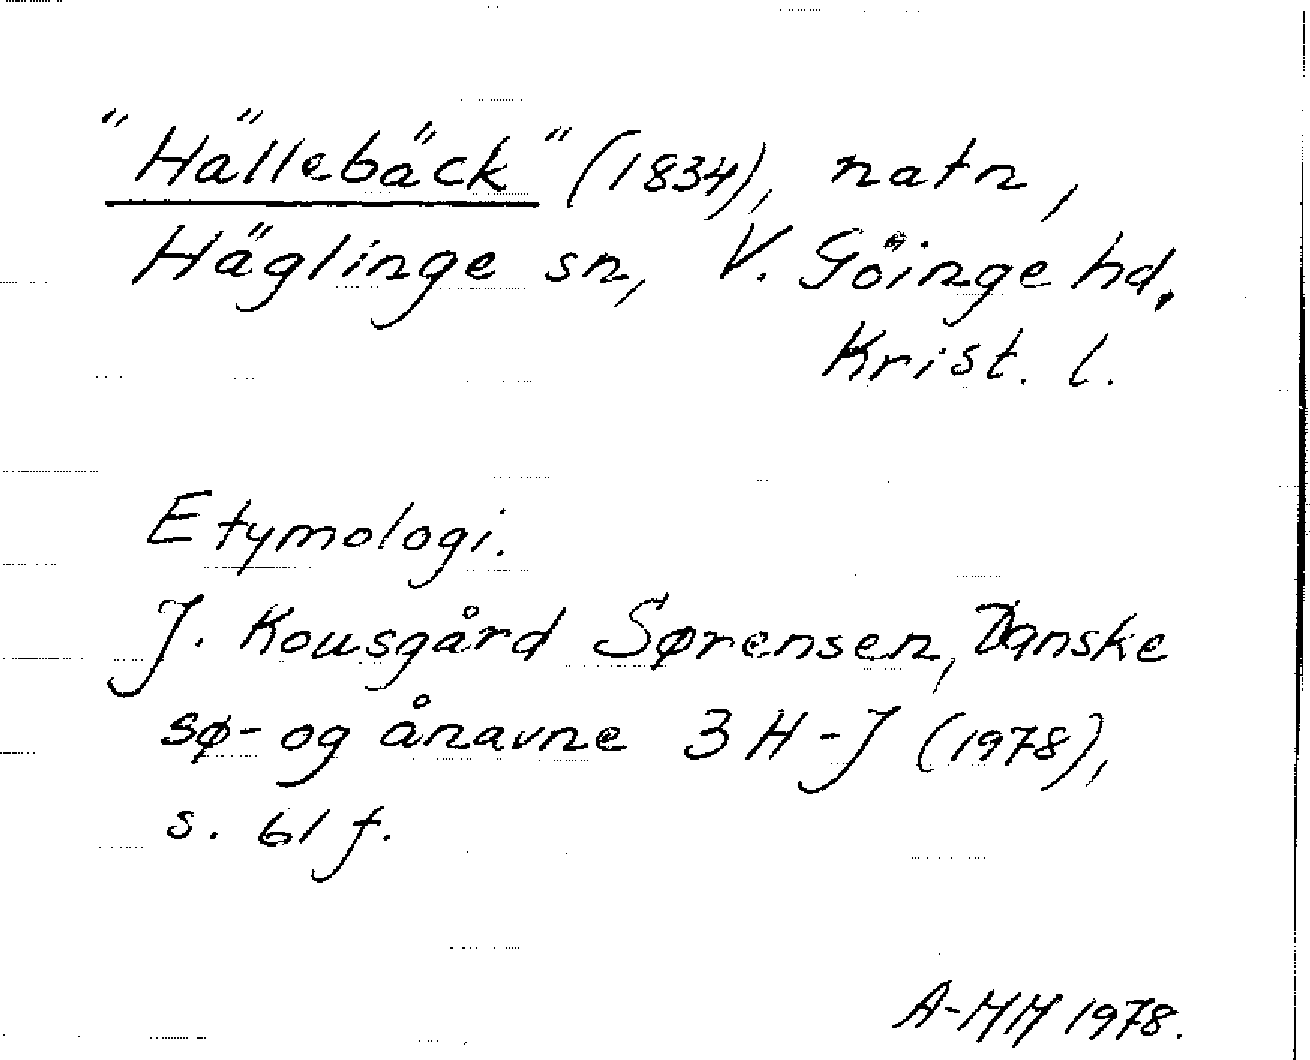 "Hällebäck" (1834), natn,
Häglinge sn, V. Göinge hd,
Krist. l.
Etymologi.
J. Kousgård Sørensen, Danske
sø- og ånavne 3 H-J (1978),
s. 61 f.
A-MM 1978.